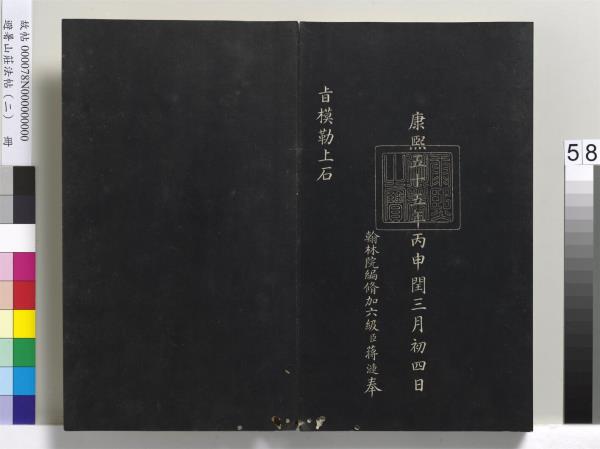 康熙五十五年丙申閏三月初四日
翰林院編脩加六級臣蔣漣奉
旨模勒上石
故帖 000078N000000000
避暑山莊法帖（二） 冊
5 8